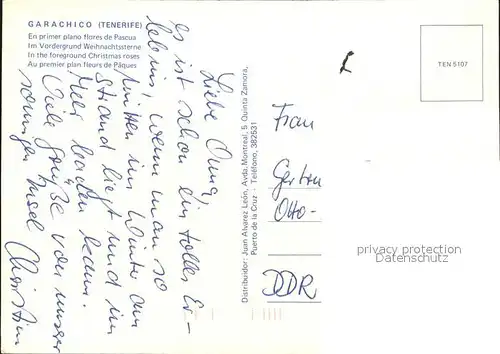 GARACHICO (TENERIFE)
En primer plano flores de Pascua
Im Vordergrund Weihnachtssterne
In the foreground Christmas roses
Au premier plan fleurs de Pâques
Liebe Oma,
es ist schon ein tolles Er-
lebnis, wenn man so
mitten im Winter am
Strand liegt und im
Meer baden kann.
Viele Grüße von unserer
sonnigen Insel Christian
Distribuidor: Juan Alvarez León, Avda. Montreal, 5 Quinta Zamora,
Puerto de la Cruz - Teléfono, 382531
TEN 5107
Frau
Gertru
Otto-
DDR
privacy protection
Datenschutz